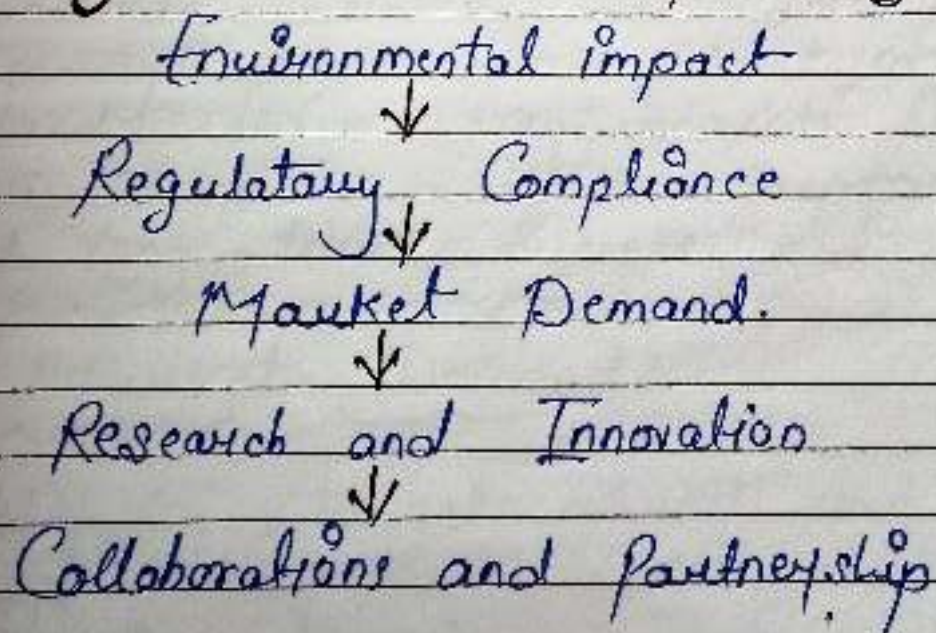 Environmental impact
↓
Regulatory Compliance
↓
Market Demand.
↓
Research and Innovation
↓
Collaborations and Partnership